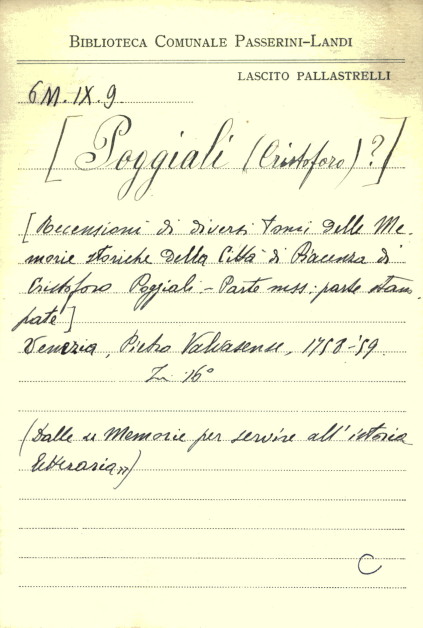 BIBLIOTECA COMUNALE PASSERINI-LANDI
LASCITO PALLASTRELLI
6M.IX.9.
[Poggiali (Cristoforo)?]
[Recensioni di diversi tomi delle Me-
morie storiche della Città di Piacenza di
Cristoforo Poggiali - Parte mss: parte stam-
pate]
Venezia, Pietro Valvasense, 1758-'59
In 16°
(Dalle «Memorie per servire all'istoria
letteraria»)
C